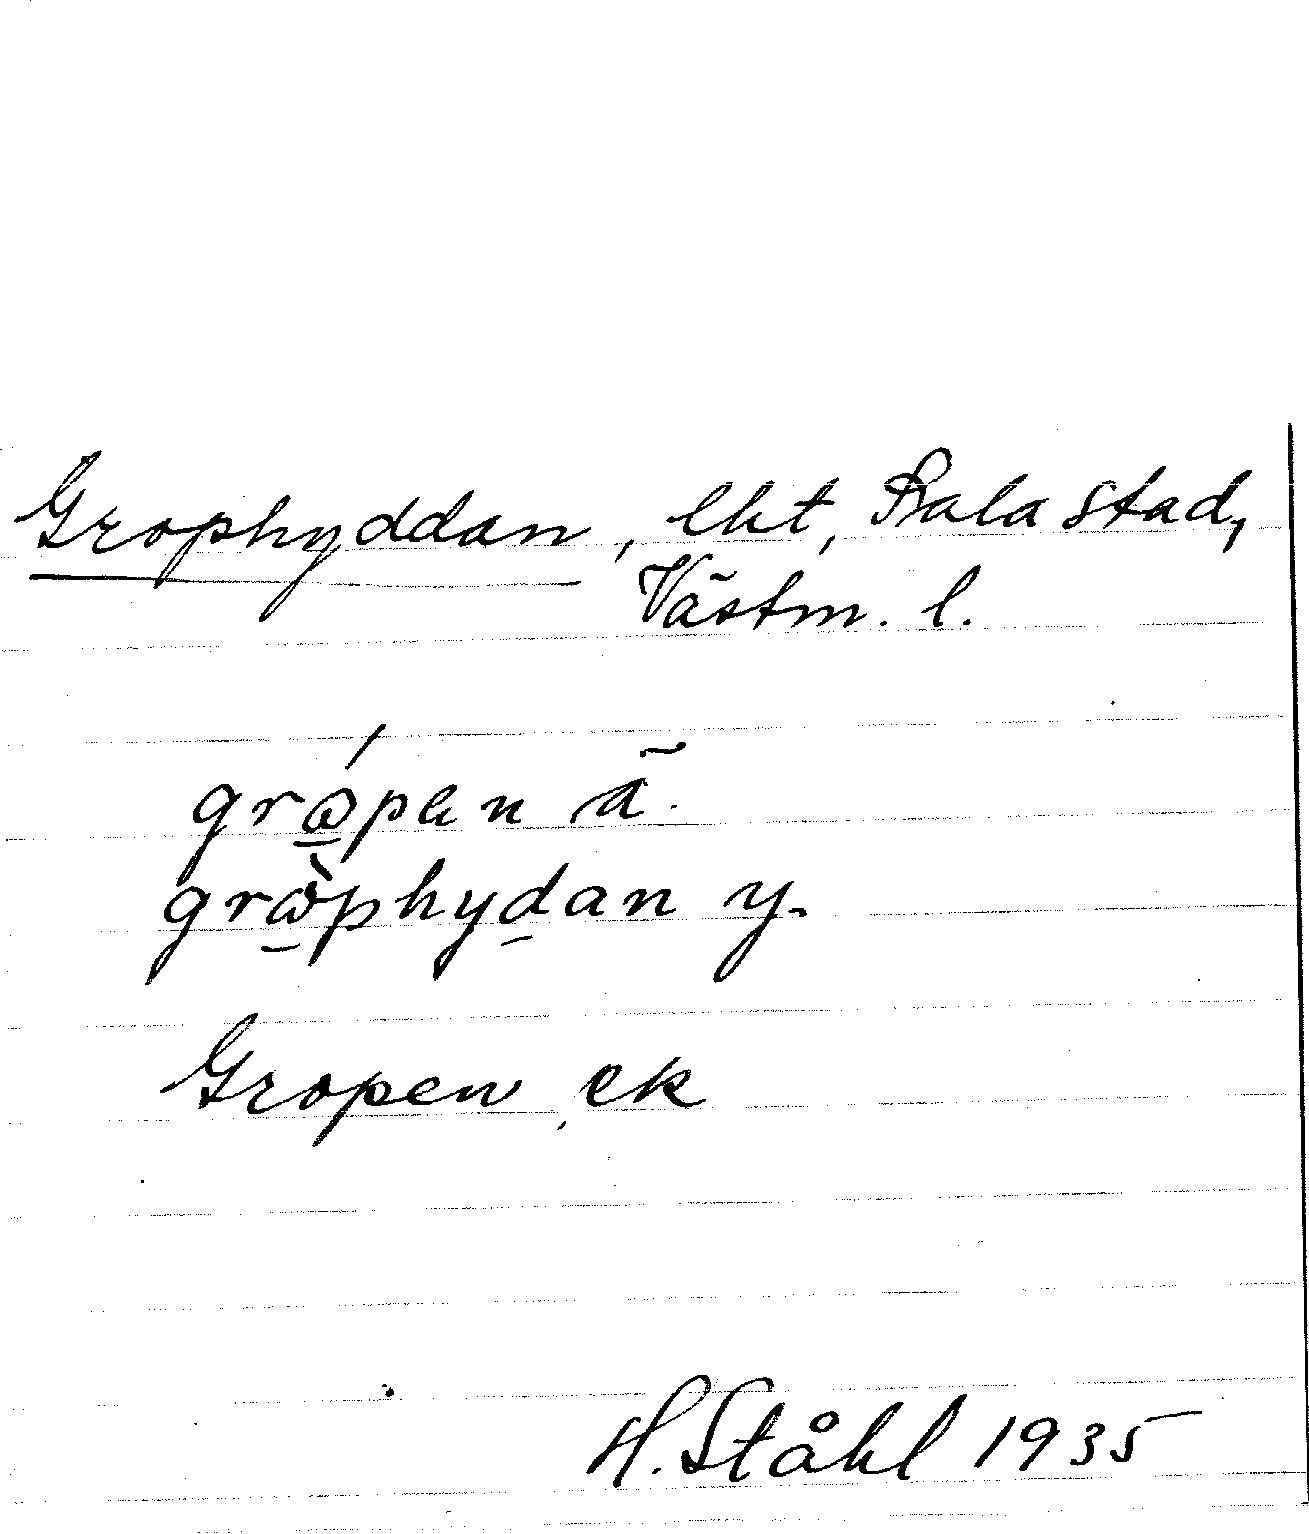 Grophyddan, lht, Sala stad,
Västm. l.
grópen ä.
gròphydan y.
Gropen, ek
H. Ståhl 1935